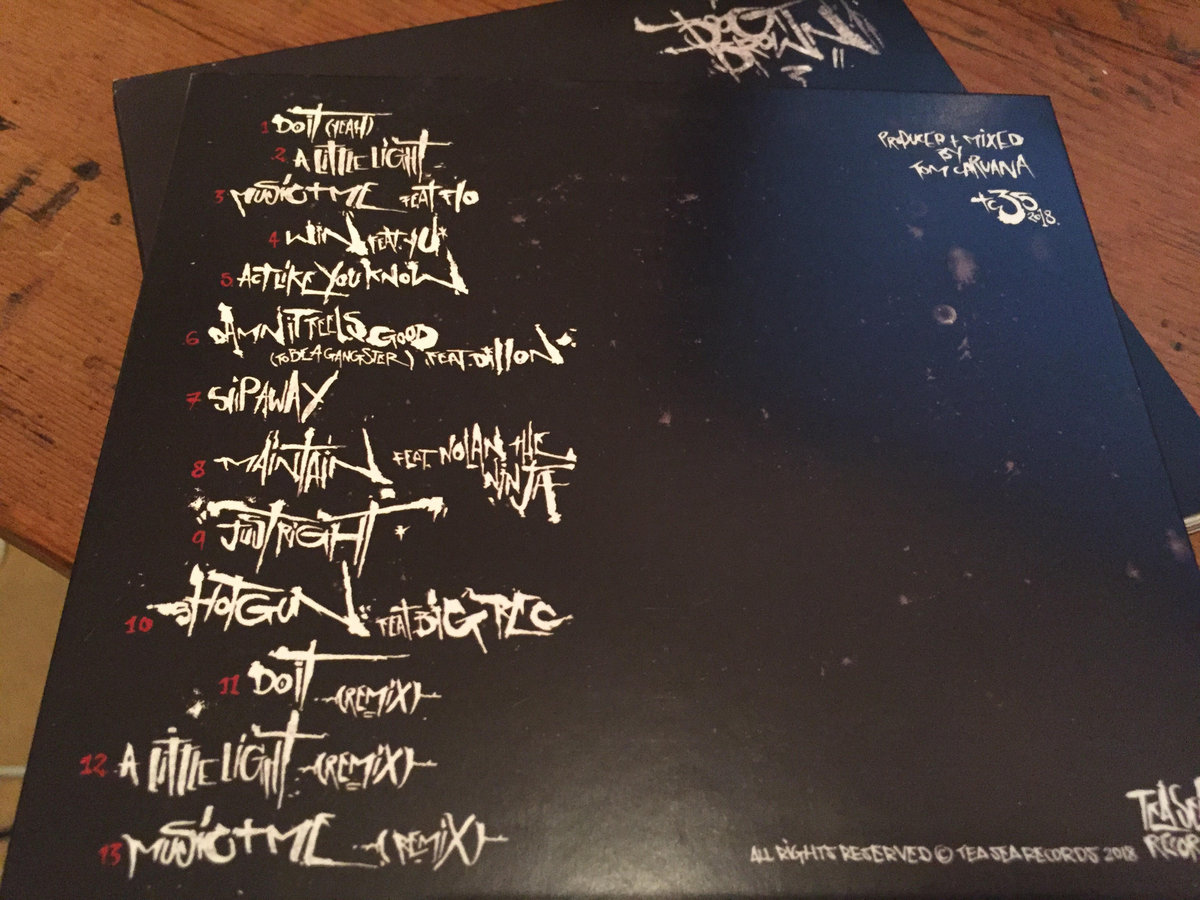 DOCT
BROWN
1 DO IT (YEAH)
2 A LITTLE LIGHT
3 MUSIC + ME FEAT FLO
4 WIN FEAT. YU
5 ACT LIKE YOU KNOW
6 DAMN IT FEELS GOOD
(TO BE A GANGSTER) FEAT. DILLON
7 SLIP AWAY
8 MAINTAIN FEAT. NOLAN THE
NINJA
9 JUST RIGHT
10 SHOTGUN FEAT BIG REC
11 DO IT (REMIX)
12 A LITTLE LIGHT (REMIX)
13 MUSIC + ME (REMIX)
PRODUCED + MIXED
BY
TOM CARUANA
TC35
2018.
TEA SE
RECOR
ALL RIGHTS RESERVED © TEA SEA RECORDS 2018